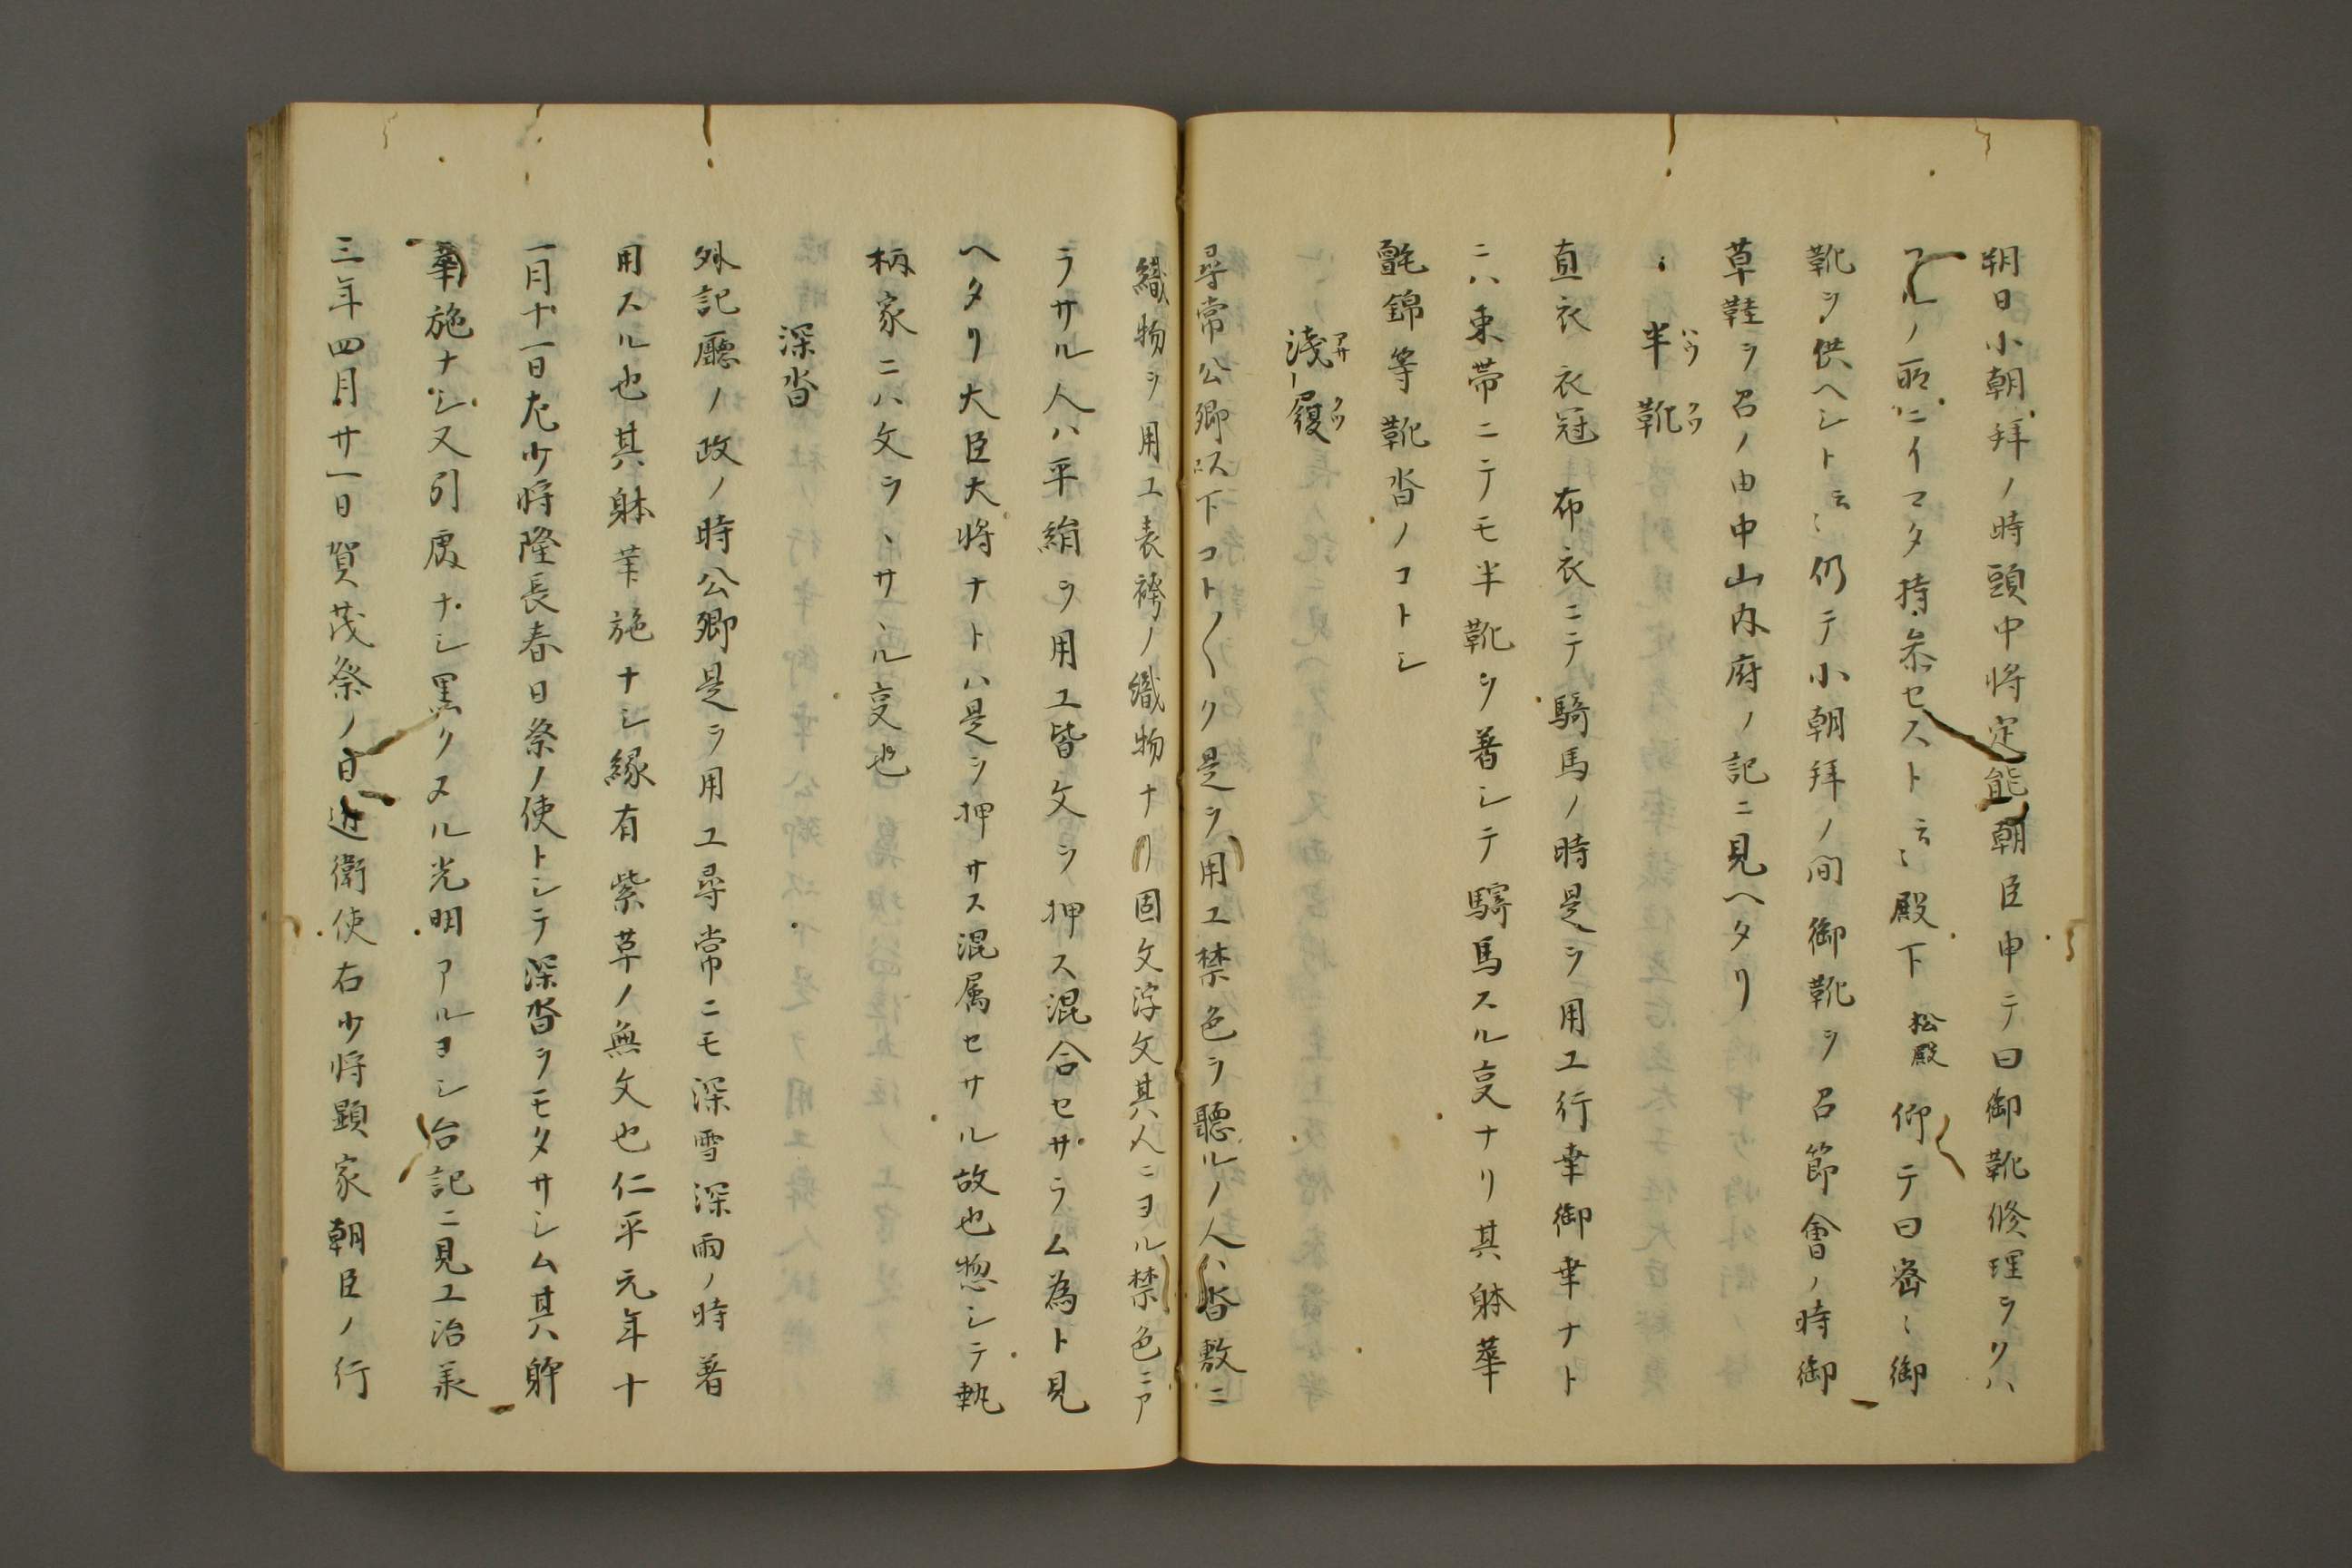 朔日小朝拜ノ時頭中将定能朝臣申テ曰御靴修理ヲクハ
フルノ所ニイマタ持参セスト云〻殿下松殿仰テ曰密〻御
靴ヲ供ヘシト云〻仍テ小朝拜ノ間御靴ヲ召節會ノ時御
草鞋ヲ召ノ由中山内府ノ記ニ見ヘタリ
半靴 ハウクワ
直衣衣冠布衣ニテ騎馬ノ時是ヲ用エ行幸御幸ナト
ニハ束帯ニテモ半靴ヲ着シテ騎馬スル叓ナリ其躰華
氈錦等靴沓ノコトシ
淺履 アサクツ
尋常公卿以下コト〱ク是ヲ用エ禁色ヲ聴ルノ人ハ沓敷ニ
織物ヲ用エ表袴ノ織物ナリ固文浮文其人ニヨル禁色ニア
ラサル人ハ平絹ヲ用エ皆文ヲ押ス混合セサラム為ト見
ヘタリ大臣大将ナトハ是ヲ押サス混属セサル故也惣シテ執
柄家ニハ文ヲヽサヽル叓也
深沓
外記廳ノ政ノ時公卿是ヲ用エ尋常ニモ深雪深雨ノ時着
用スル也其躰華施ナシ縁有紫草ノ無文也仁平元年十
一月十一日左少将隆長春日祭ノ使トシテ深沓ヲモタサシム其躰
華施ナシ又引廣ナシ黒クヌル光明アルヨシ台記ニ見エ治承
三年四月廿一日賀茂祭ノ日近衛使右少将顕家朝臣ノ行